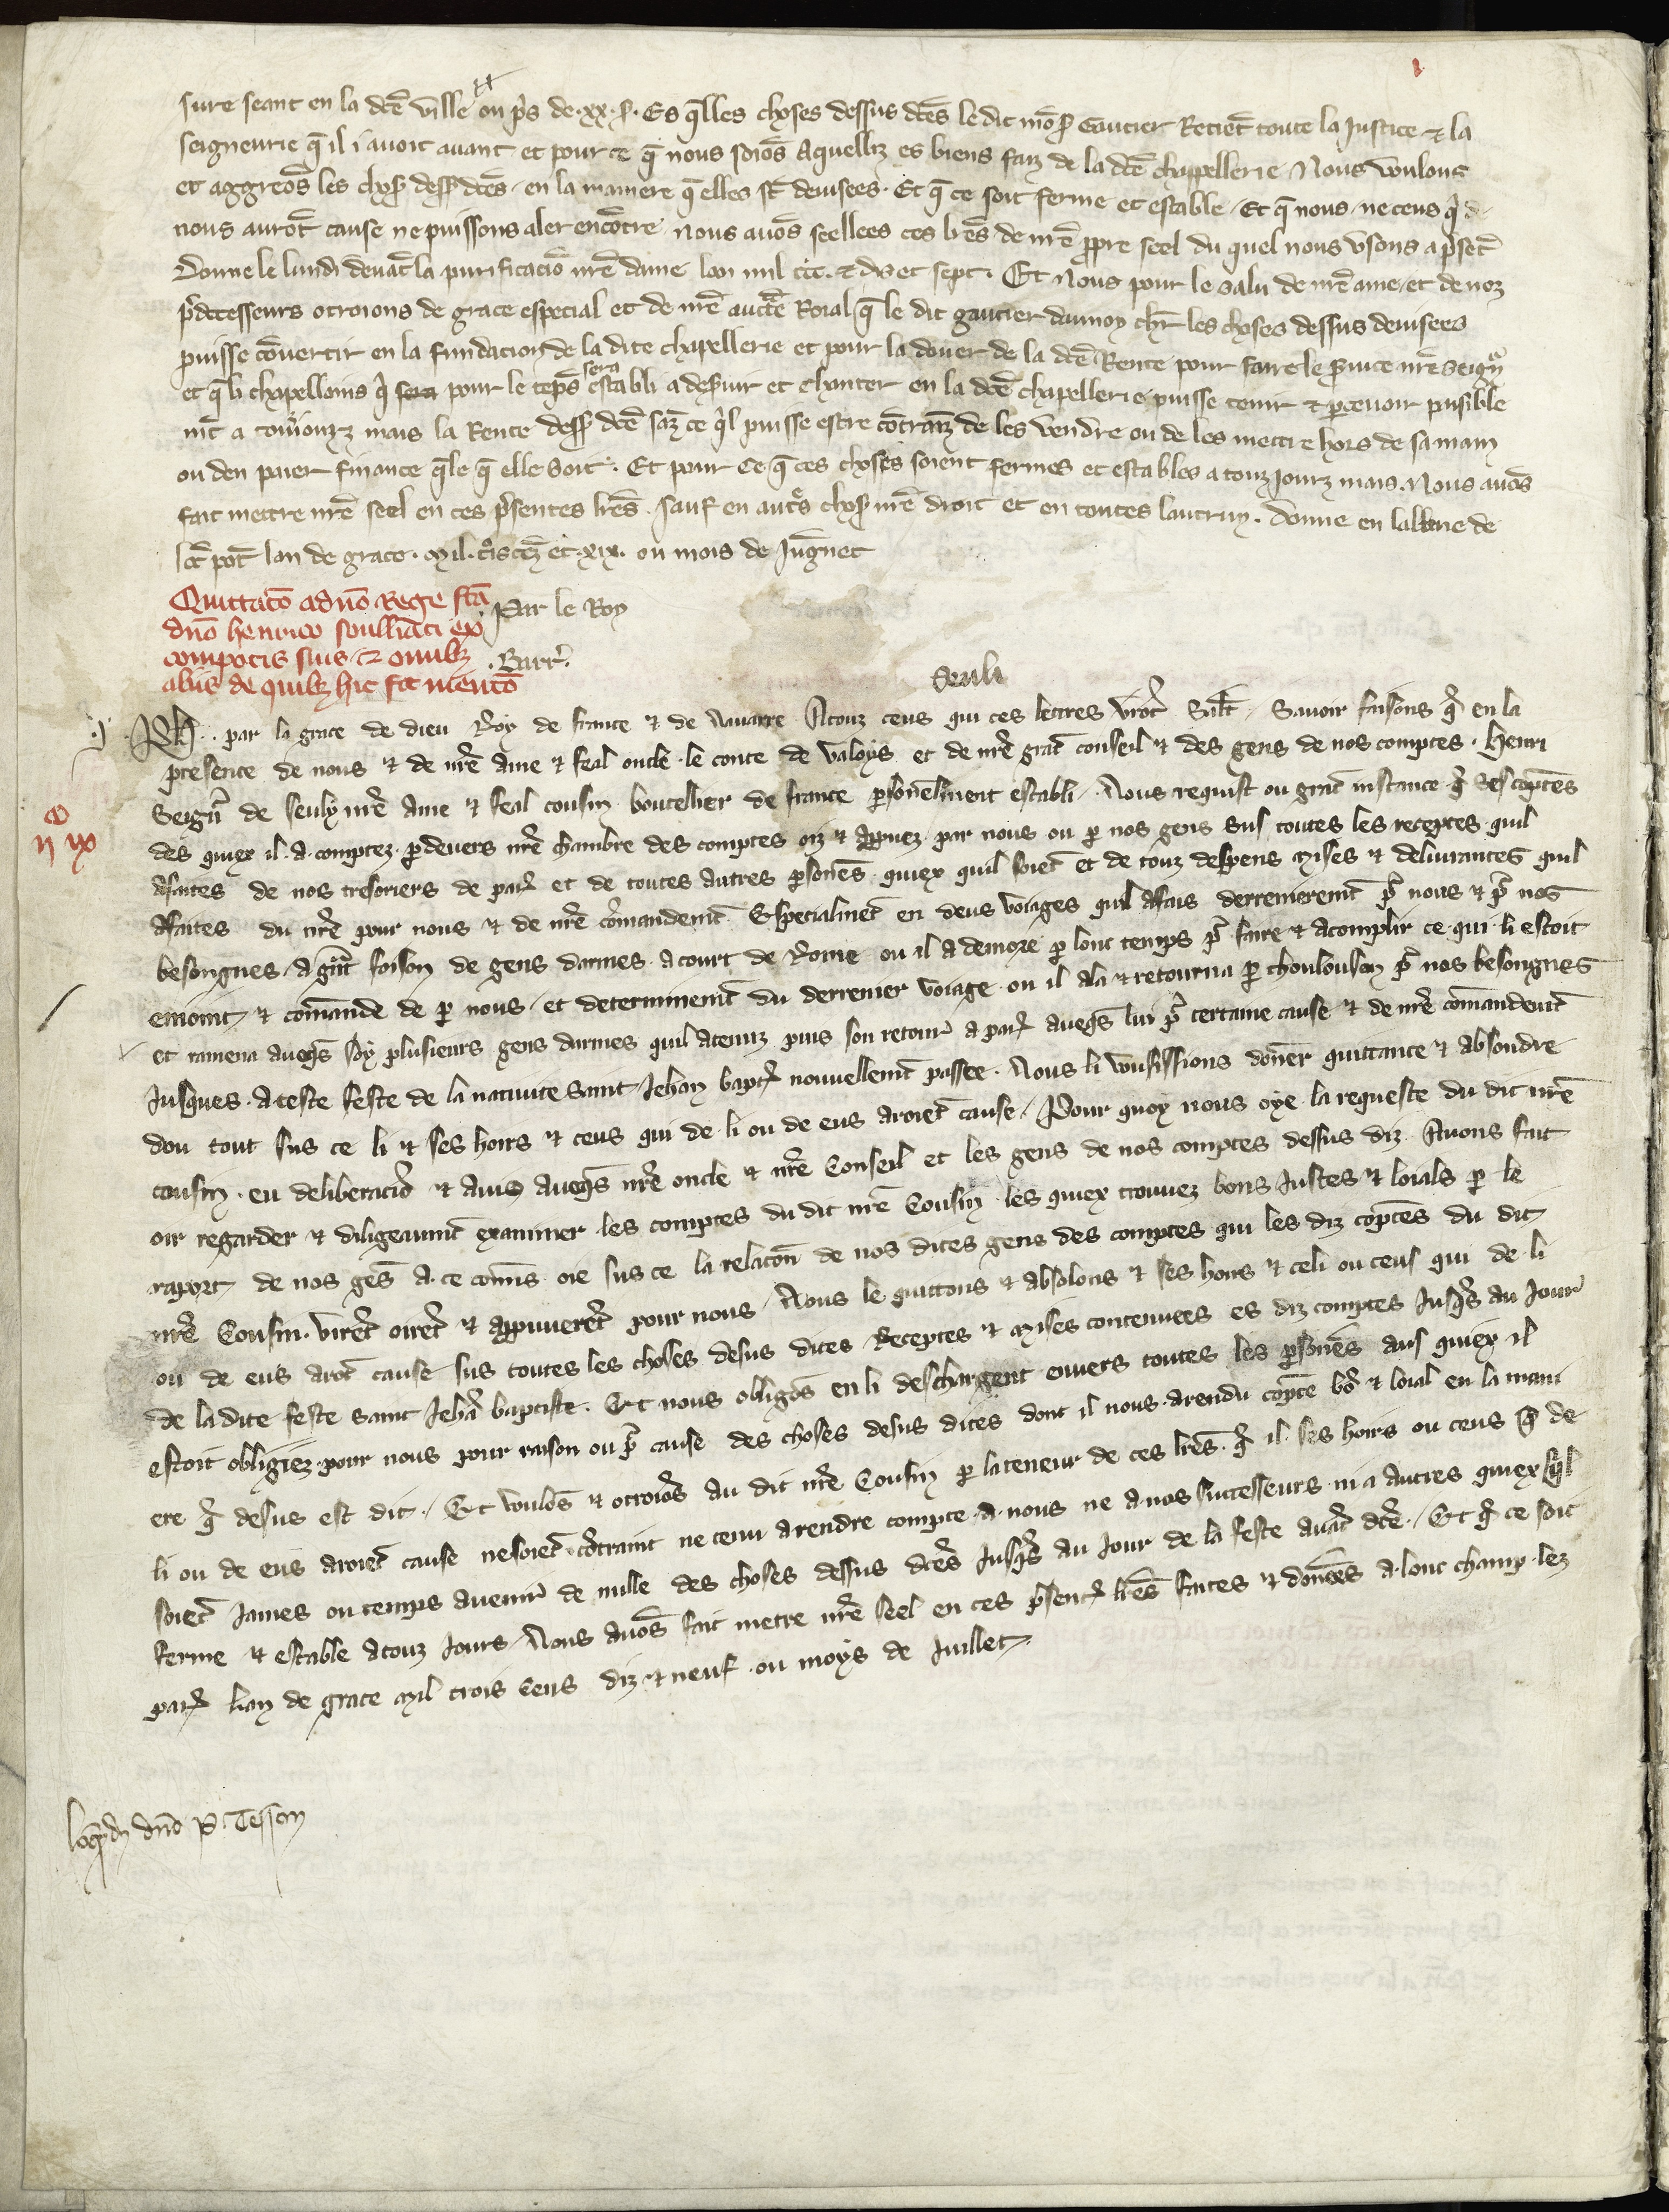 sure seant en la dcē ville ou pris de .xx. s. Es q̄lles choses dessus dcēs le dit mōs Gautier Retiēt toute la Justice ⁊ la
seigneurie q̄ il i avoit avant et pour ce q̄ nous soiōs Aquelliz es biens faiz de la dcē chappellerie Nous voulons
et aggreōs les chos dess dcēs en la maniere q̄ elles sōt devisees. Et q̄ ce soit ferme et estable Et q̄ nous ne ceus qi de
nous aurōt cause ne puissons aler encōtre nous avōs seellees ces lrēs de nrē ppre seel du quel nous usons a psēt
Donne le lundi devāt la purificaciō nrē dame lan mil ccc. ⁊ dis et sept. Et Nous pour le salu de nrē ame et de noz
pdecesseurs otroions de grace especial et de nrē auctē Roial q̄ le dit gautier daunoy chr̄ les choses dessus devisees
puisse cōvertir en la fundacion de la dite chapellerie et pour la douer de la dcē Rente pour faire le svice nrē seigr
et q̄ li chapellains qi sera pour le tēps sera establi a desvir et chanter en la dcē chapellerie puisse tenir ⁊ pcevoir paisible
mt a touzjourz mais la Rente dess dcē sāz ce qil puisse estre cōtraīz de les vendre ou de les mettre hors de sa main
ou den paier finance q̄le q̄ elle soit. Et pour ce q̄ ces choses soient fermes et estables a touz jourz mais. Nous avōs
fait mettre nrē seel en ces psentes lrēs. sauf en autēs chos nrē droit et en toutes lautruy. Donne en labbaie de
lan de grace. Mil. trois cēz et .xix. ou mois de Juignet
Quittacō a dnō Rege fcā
dnō henrico soulliaci ex
compotis suis ⁊ omibz
aliis de quibz hic fit mentō
Par le Roy
. Barr.
Seuli
.j. Ph. par la grace de dieu Roy de france ⁊ de Navarre A touz ceus qui ces lettres vrōt Salt. Savoir faisons q̄ en la
presence de nous ⁊ de nrē ame ⁊ feal oncle le conte de valoys et de nrē grāt conseil ⁊ des gens de nos comptes. Henri
Seigr de seuly nrē ame ⁊ feal cousin bouteillier de france psonelment establi. Nous requist ou grāt instance q̄ ses cōptes
des quiex il a comptez pdevers nrē chambre des comptes oiz ⁊ appvez par nous ou p nos gens sus toutes les receptes quil
a faites de nos tresoriers de paris et de toutes autres psonēs quiex quil soiēt et de touz despens mises ⁊ delivrances quil
a faites du nrē pour nous ⁊ de nrē cōmandemt Especialmēt en deus voiages quil a fais derrenieremt pr nous ⁊ pr nos
besongnes a grāt foison de gens darmes a court de Rome ou il a demoré p lonc temps pr faire ⁊ acomplir ce qui li estoit
enjoint ⁊ comande de p nous et determinemt du derrenier voiage ou il ala ⁊ retourna p thoulousen pr nos besongnes
et ramena aveqs soy plusieurs gens darmes quil a tenuz puis son retour a paris aveqs lui pr certaine cause ⁊ de nrē comandemt
Jusques a ceste feste de la nativite saint Jehan bapt nouvellemt passee. Nous li vousissions doner quittance ⁊ absoudre
dou tout sus ce li ⁊ ses hoirs ⁊ ceus qui de li ou de eus aroiēt cause. Pour quoy nous oye la requeste du dit nrē
cousin. eu deliberaciō ⁊ avis aveqs nrē oncle ⁊ nrē Conseil et les gens de nos comptes dessus diz Avons fait
oir regarder ⁊ diligeaumt examiner les comptes du dit nrē Cousin les quiex trouvez bons justes ⁊ loials p le
raport de nos gēs a ce comis oie sus ce la relacōn de nos dites gens des comptes qui les diz cōptes du dit
nrē Cousin. virēt oirēt ⁊ appuverēt pour nous. Nous le quittons ⁊ absolons ⁊ ses hoirs ⁊ celi ou ceus qui de li
ou de eus arōt cause sus toutes les choses desus dites Receptes ⁊ mises contenuees es diz comptes Jusqs au Jour
de la dite feste saint Jehā baptiste. Et nous obligōs en li deschargent envers toutes les psonēs aus quiex il
estoit obligiez pour nous pour raison ou pr cause des choses desus dites dont il nous a rendu cōpte bō ⁊ loial en la mani
ere q̄ desus est dit. Et voulōs ⁊ otroiōs au dit nrē Cousin p la teneur de ces lrēs. q̄ il ses hoirs ou ceus q̄ de
li ou de eus aroiēt cause ne soiēt cōtraint ne tenu a rendre compte a nous ne a nos successeurs ni a autres quiex qil
soiēt James ou temps avenir de nulle des choses dessus dcēs Jusqs au Jour de la feste avāt dcē. Et q̄ ce soit
ferme ⁊ estable a touz Jours. Nous avōs fait metre nrē seel en ces psent lrēs faites ⁊ donees a lonc champ lez
paris lan de grace Mil trois Cens diz ⁊ neuf ou moys de Juillet.
dnō P. Tesson